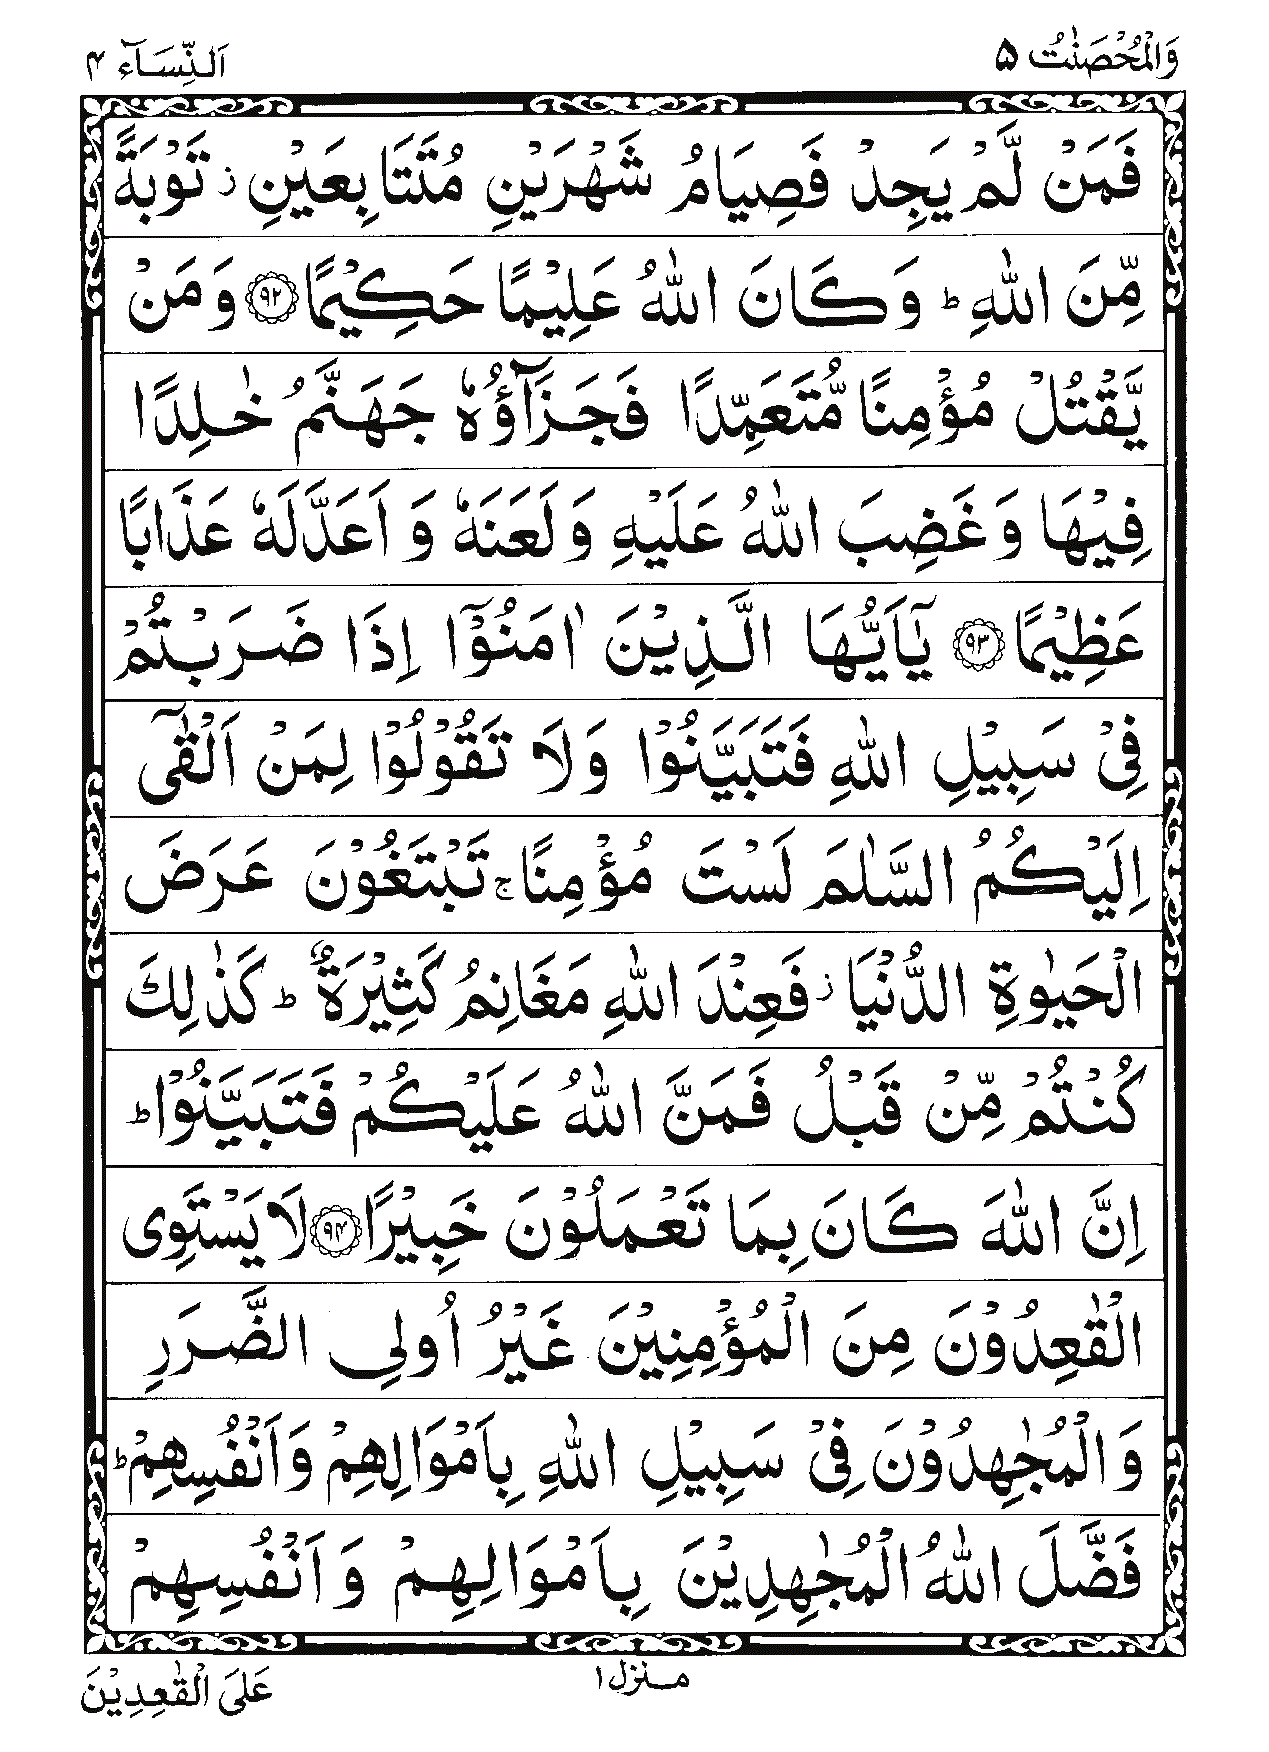 وَالْمُحْصَنٰتُ ۵
اَلنِّسَآء ۴
فَمَنْ لَّمْ يَجِدْ فَصِيَامُ شَهْرَيْنِ مُتَتَابِعَيْنِ ز تَوْبَةً
مِّنَ اللّٰهِ ط وَكَانَ اللّٰهُ عَلِيْمًا حَكِيْمًا ۹۲ وَمَنْ
يَّقْتُلْ مُؤْمِنًا مُّتَعَمِّدًا فَجَزَآؤُهٗ جَهَنَّمُ خٰلِدًا
فِيْهَا وَغَضِبَ اللّٰهُ عَلَيْهِ وَلَعَنَهٗ وَاَعَدَّلَهٗ عَذَابًا
عَظِيْمًا ۹۳ يٰٓاَيُّهَا الَّذِيْنَ اٰمَنُوْٓا اِذَا ضَرَبْتُمْ
فِيْ سَبِيْلِ اللّٰهِ فَتَبَيَّنُوْا وَلَا تَقُوْلُوْا لِمَنْ اَلْقٰٓى
اِلَيْكُمُ السَّلٰمَ لَسْتَ مُؤْمِنًا ج تَبْتَغُوْنَ عَرَضَ
الْحَيٰوةِ الدُّنْيَا ز فَعِنْدَ اللّٰهِ مَغَانِمُ كَثِيْرَةٌ ط كَذٰلِكَ
كُنْتُمْ مِّنْ قَبْلُ فَمَنَّ اللّٰهُ عَلَيْكُمْ فَتَبَيَّنُوْا ط
اِنَّ اللّٰهَ كَانَ بِمَا تَعْمَلُوْنَ خَبِيْرًا ۹۴ لَا يَسْتَوِى
الْقٰعِدُوْنَ مِنَ الْمُؤْمِنِيْنَ غَيْرُ اُولِى الضَّرَرِ
وَالْمُجٰهِدُوْنَ فِيْ سَبِيْلِ اللّٰهِ بِاَمْوَالِهِمْ وَاَنْفُسِهِمْ ط
فَضَّلَ اللّٰهُ الْمُجٰهِدِيْنَ بِاَمْوَالِهِمْ وَاَنْفُسِهِمْ
منزل ۱
عَلَى الْقٰعِدِيْنَ